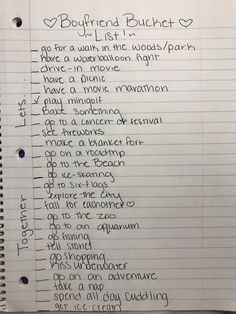 ♡Boyfriend Bucket♡
~List!~
Lets...
go for a walk in the woods/park
have a waterballoon fight
drive-in movie
have a picnic
have a movie marathon
✓ play minigolf
Bake something
go to a concert or festival
see fireworks
make a blanket fort
go on a roadtrip
go to the Beach
go ice-skating
go to six-flags
explore the city
fall for eachother♡
Together
go to the zoo
go to an aquarium
go fishing
tell stories
go shopping
kiss underwater
go on an adventure
take a nap
spend all day cuddling
get ice-cream